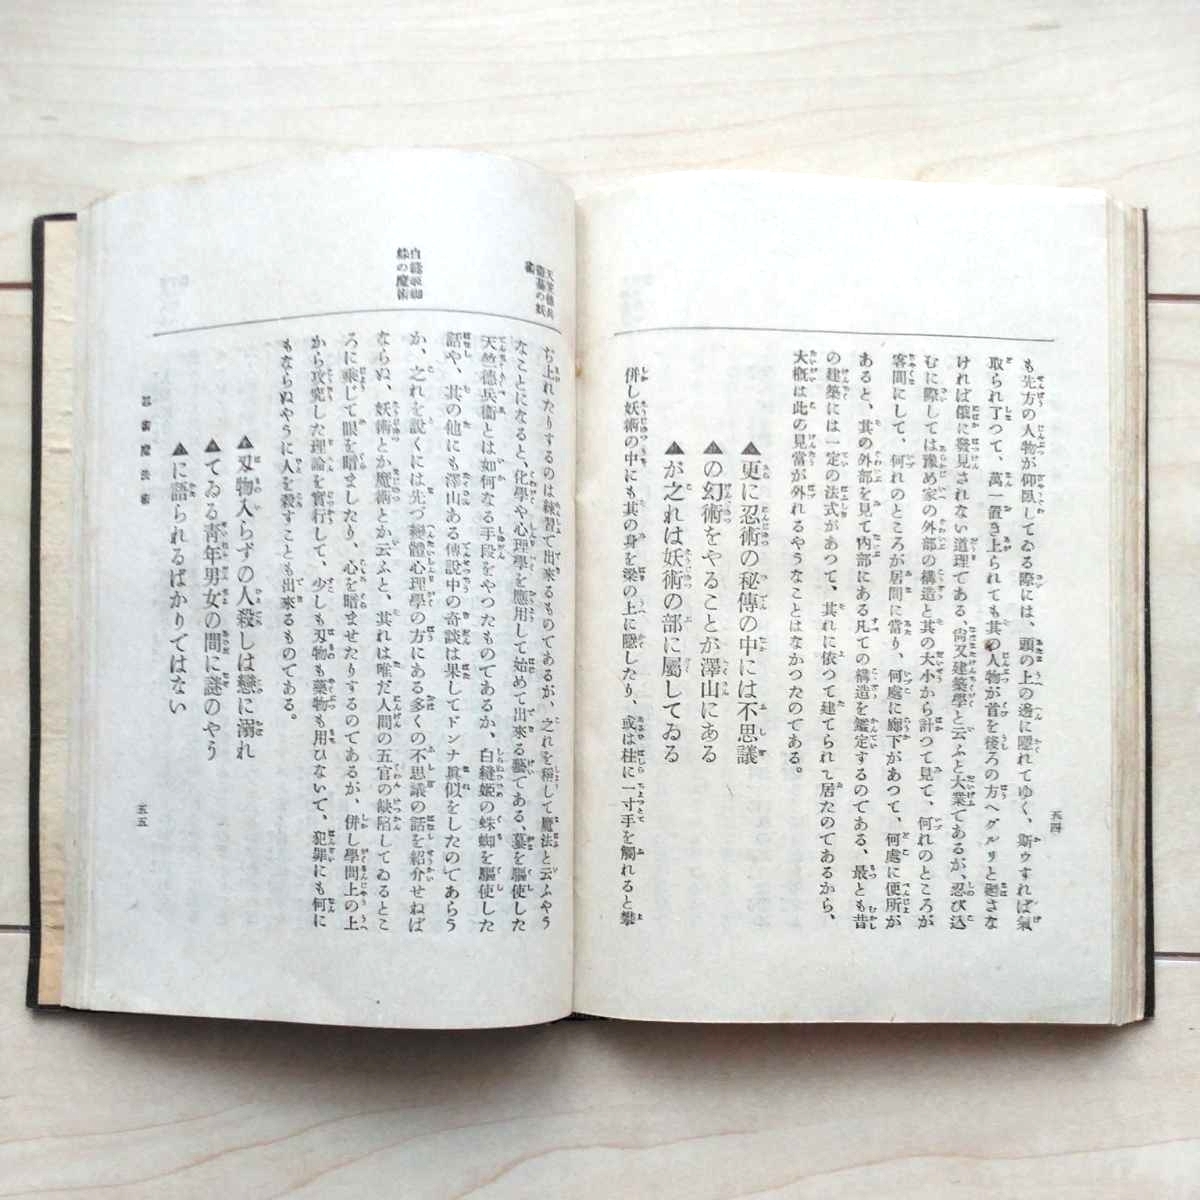 も先方の人物が仰臥してゐる際には、頭の上の邊に隱れてゆく、斯ウすれば氣
取られ了つて、萬一置き上られても其の人物が首を後ろの方へグルリと廻さな
ければ僕に發見されない道理である、尙又建築學と云ふと大業であるが、忍び込
むに際しては豫め家の外部の構造と其の大小から計つて見て、何れのところが
客間にして、何れのところが居間に當り、何處に廊下があつて、何處に便所が
あると、其の外部を見て內部にある凡ての構造を鑑定するのである、最とも昔
の建築には一定の法式があつて、其れに依つて建てられて居たのであるから、
大槪は此の見當が外れるやうなことはなかつたのである。
▲更に忍術の秘傳の中には不思議
▲の幻術をやることが澤山にある
▲が之れは妖術の部に屬してゐる
併し妖術の中にも其の身を梁の上に隱したり、或は柱に一寸手を觸れると攀
五四
天竺德兵
衞蟇の妖
術
白縫姬蜘
蛛の魔術
ぢ上れたりするのは練習で出來るものであるが、之れを稱して魔法と云ふやう
なことになると、化學や心理學を應用して始めて出來る藝である、蟇を驅使した
天竺德兵衞とは如何なる手段をやつたものであるか、白縫姬の蛛蜘を驅使した
話や、其の他にも澤山ある傳說中の奇談は果してドンナ眞似をしたのであらう
か、之れを說くには先づ變體心理學の方にある多くの不思議の話を紹介せねば
ならぬ、妖術とか魔術とか云ふと、其れは唯だ人間の五官の缺陷してゐるとこ
ろに乘じて眼を暗ましたり、心を暗ませたりするのであるが、併し學問上の上
から攻究した理論を實行して、少しも刃物も藥物も用ひないで、犯罪にも何に
もならぬやうに人を殺すことも出來るものである。
▲刄物入らずの人殺しは戀に溺れ
▲てゐる靑年男女の間に謎のやう
▲に語られるばかりではない
忍術魔法術
五五